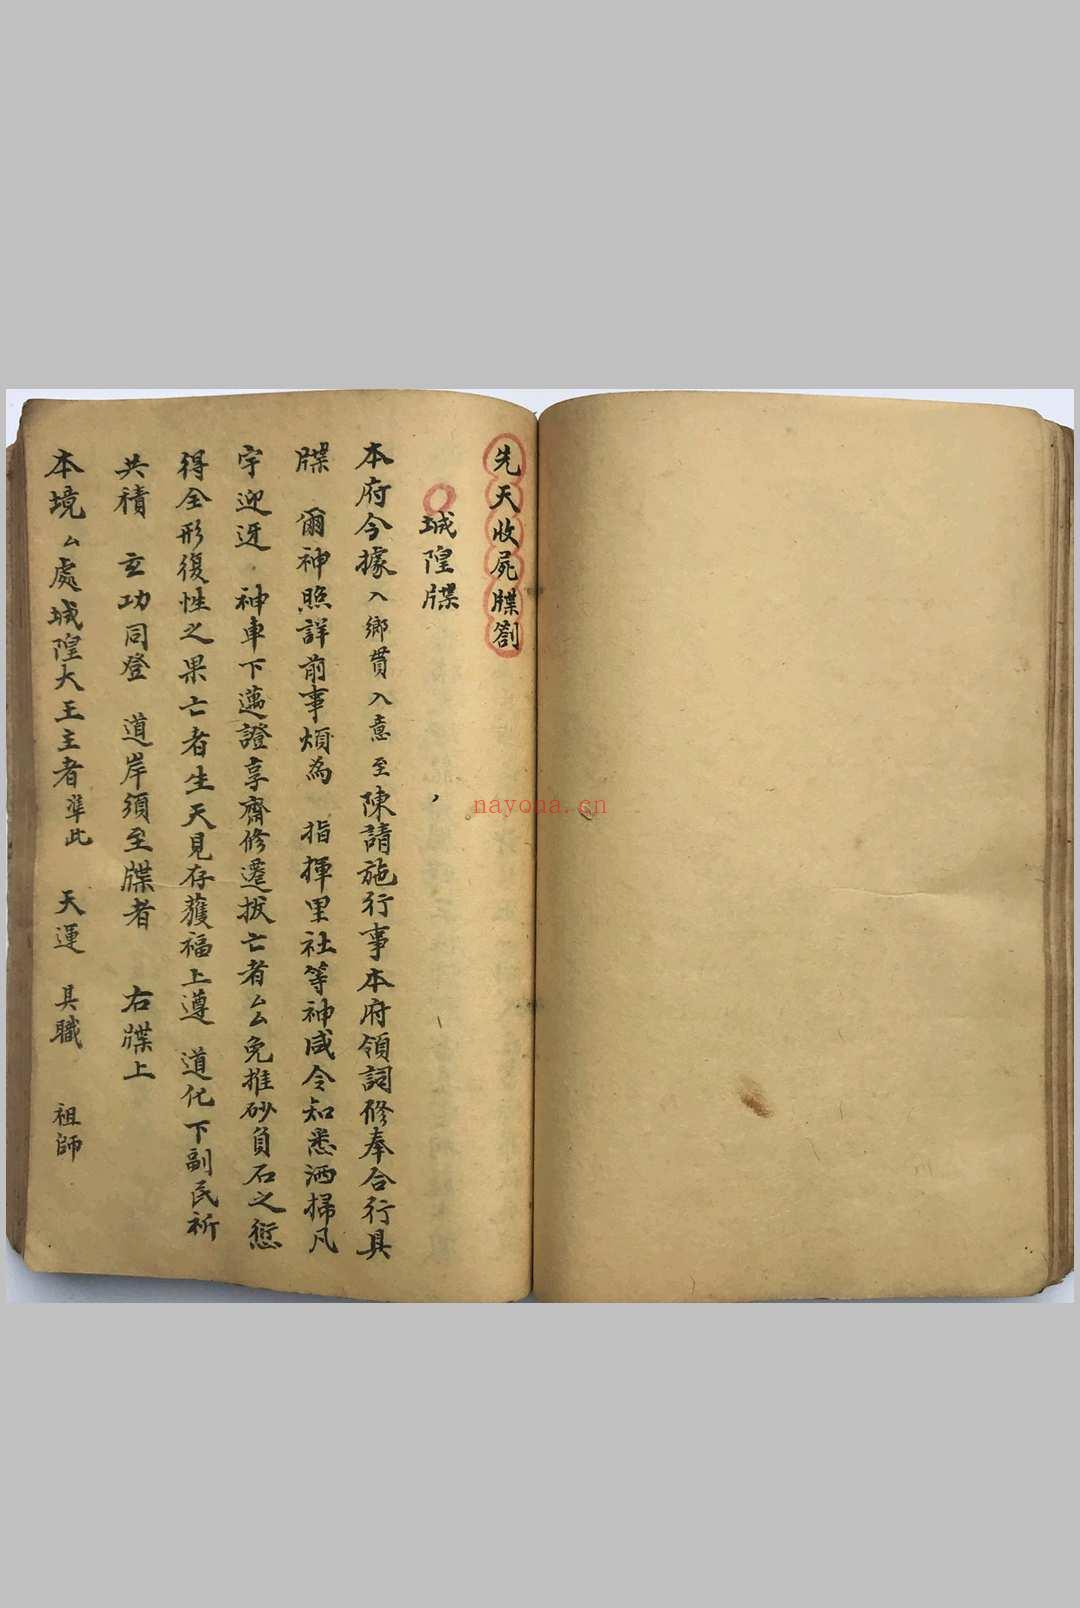 先天收屍牒劄
城隍牒
本府今據入鄉貫入意至陳請施行事本府領詞修奉合行具
牒 爾神照詳前事煩為 指揮里社等神咸令知悉洒掃凡
宇迎迓 神車下邁證享齋修遷拔亡者厶厶免推砂負石之愆
得全形復性之果亡者生天見存獲福上遵 道化下副民祈
共積 玄功同登 道岸須至牒者 右牒上
本境厶處城隍大王主者準此 天運 具職 祖師
nayona.cn